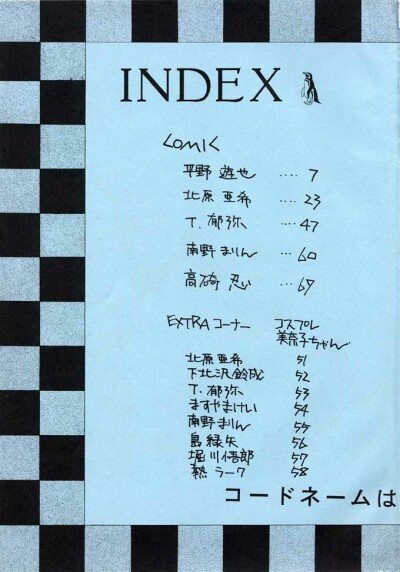 INDEX
COMIC
平野 遊也 ‥‥ 7
北原 亜希 ‥‥ 23
T. 郁弥 ‥‥47
南野 まりん ‥‥ 60
高碕 忍 ‥‥ 69
EXTRA コーナー コスプレ
美奈子ちゃん
北原亜希 51
下北沢鈴成 52
T. 郁弥 53
ますやまけい 54
南野まりん 55
島緑矢 56
堀川悟郎 57
熱 ラーク 58
コードネームは